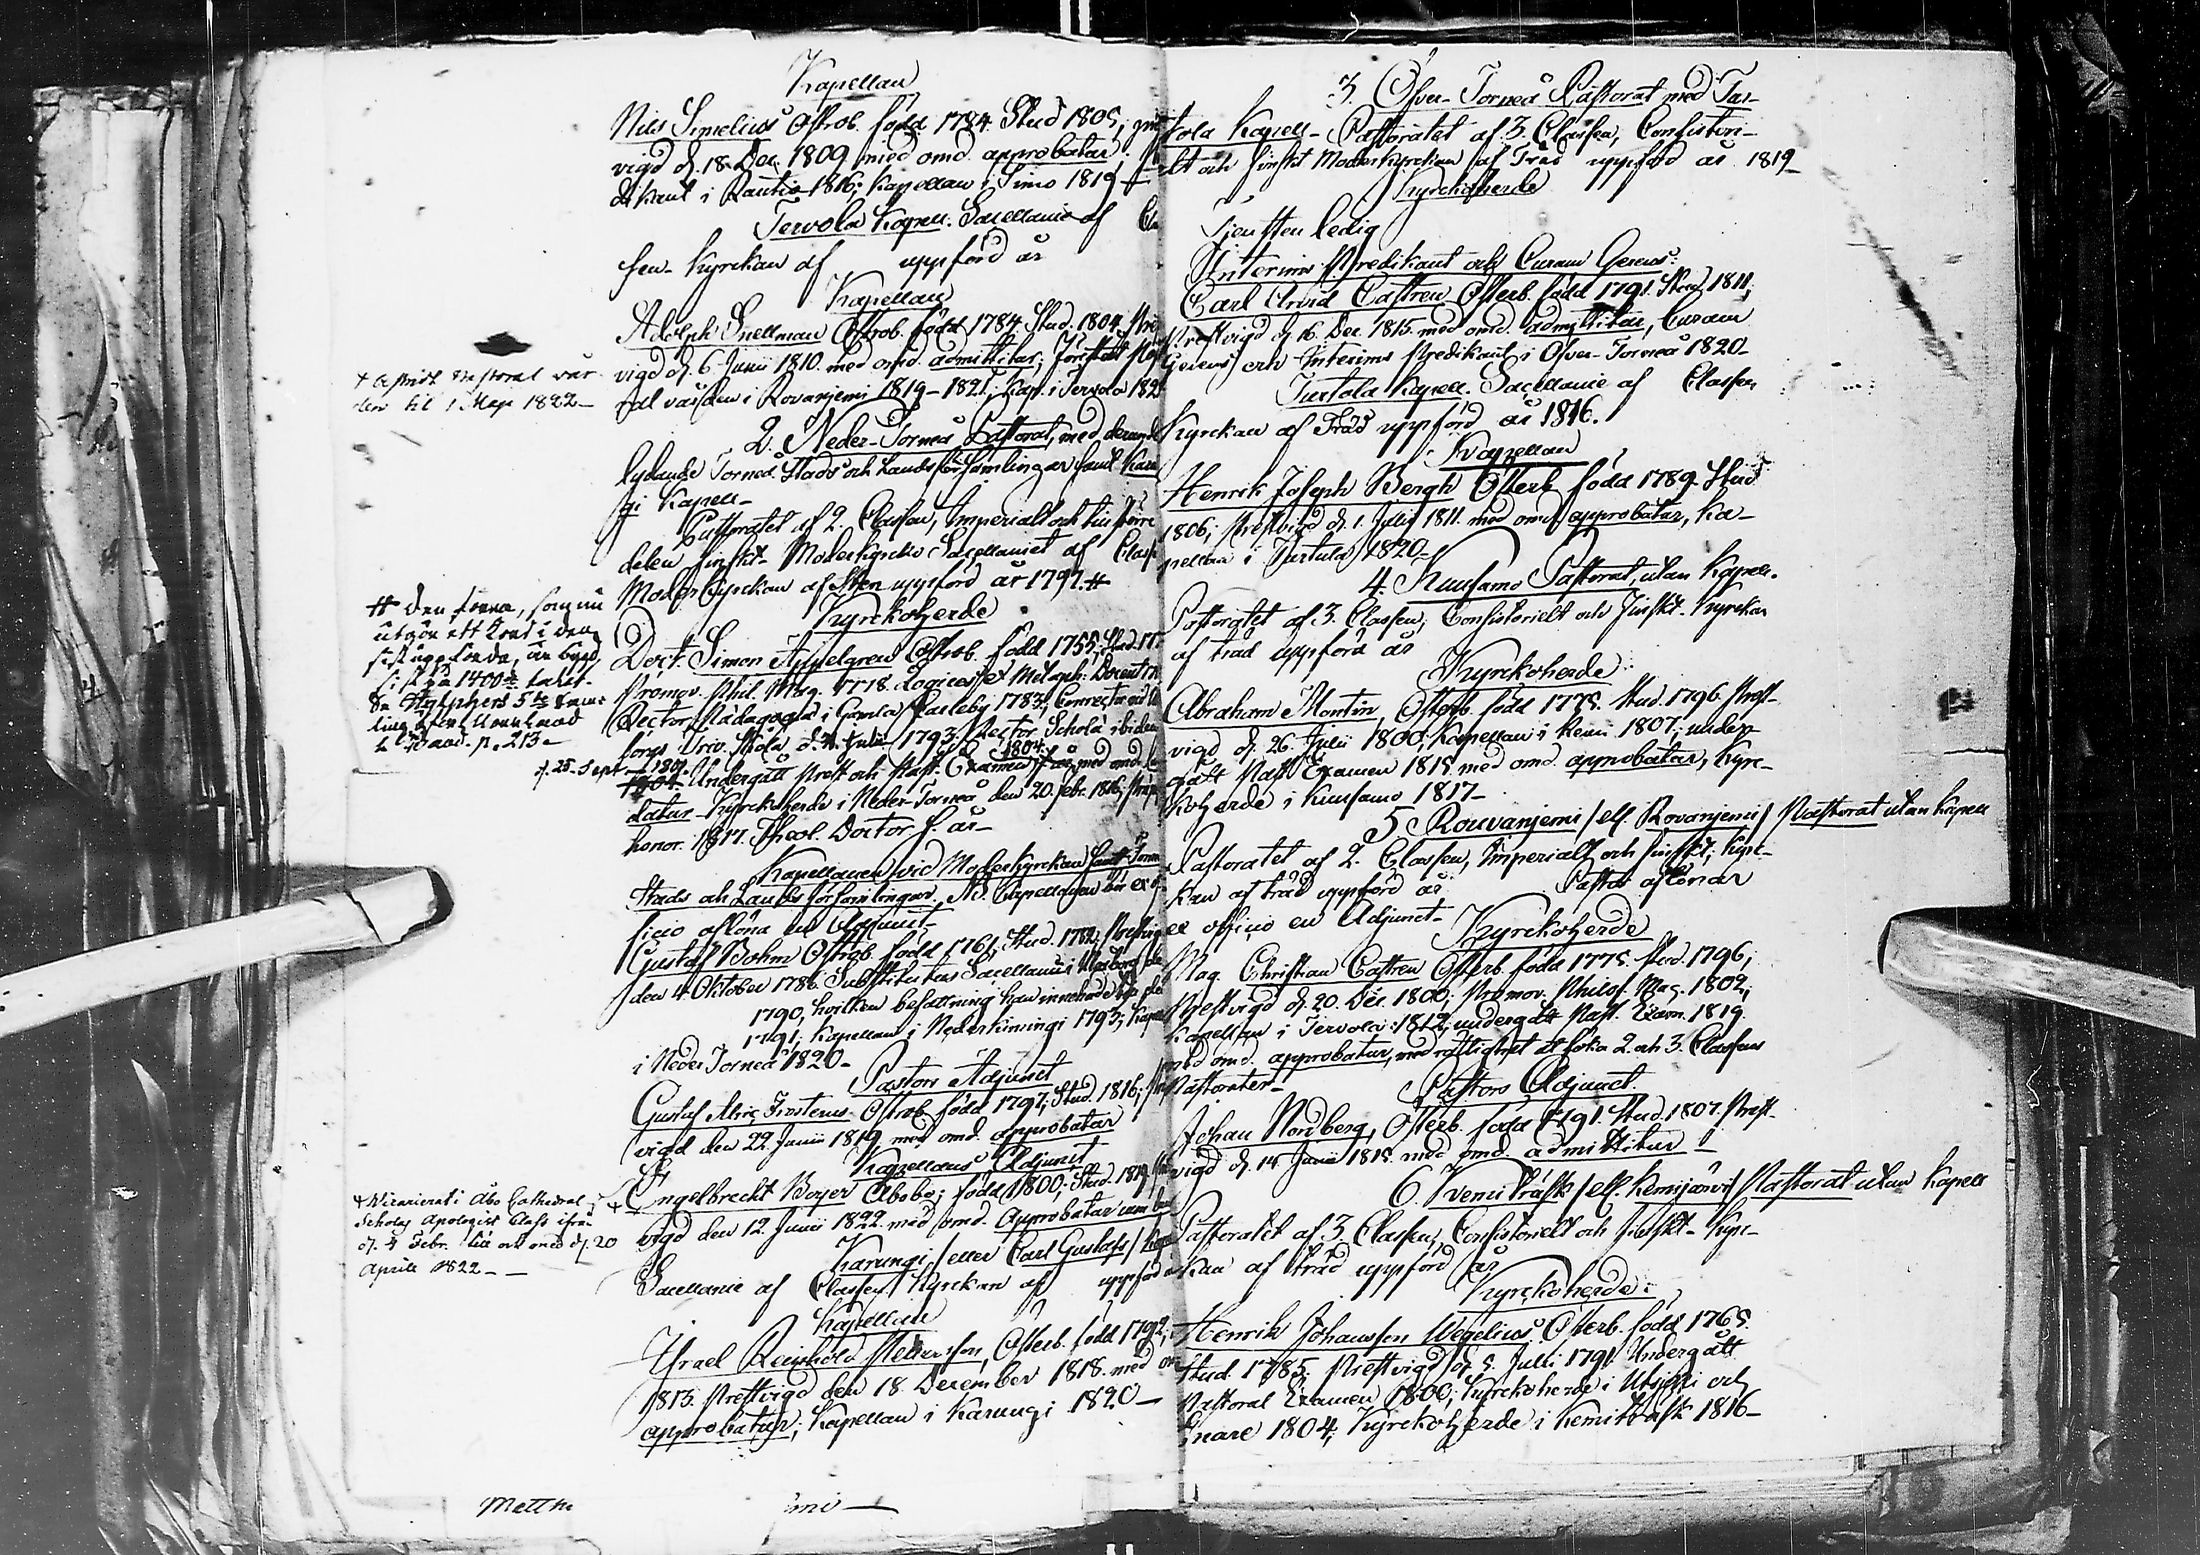 Kapellan
Nils Simelius Ostrob. född 1784. Stud 1805,
vigd d. 18. Dec. 1809 med omd. approbatur.
dikant i Rautio 1816; Kapellan i Simo 1819
Tervola Kapell. Sacellanie af
sen- Kyrckan af uppförd år
Kapellan
Adolph Snellman Ostrob. född 1784. Stud. 1804.
vigd d. 6 Junii 1810. med omd. admittitur; förestått
ral vården i Rovanjemi 1819-1821; Kap. i Tervola 182
+ Pastoral vår-
den til 1 Maji 1822-
2. Neder-Torneå Pastorat, med derunder
lydande Torneå Stads och Landsförsamlingar samt Karun
gi Kapell-
Pastoratet af 2. Classen, Imperialt och til större
delen finskt- Moderkyrcko Sacellaniet af Class
Moder Kyrckan af Sten uppförd år 1797. #
# Den förra, som nu
utgör ett Cor i den
sist uppförda, är bygd
på 1400
p. 213-
Kyrckoherde
Doct. Simon Appelgren Ostrob. född 1755; Stud. 17
Promov. Phil. Mag. 1778. Logices et Metaph. Docent
Rector Pädagogiä i Gamla Carleby 1783; Conrector vid
borgs Triv. Skola d. Julii 1793. Rector Scholä ibidem
d. 25 Sept. 1801. Undergått Prest och Past. Examen 1804 med omd.
datur- Kyrckoherde i Neder-Torneå den 20. Febr. 1816;
honor. 1817. Theol. Doctor s. år-
Kapellanen vid Moderkyrckan samt Torneå
Stads och Lands församlingar. NB. Kapellanen bör ex of-
ficio aflöna en Adjunct-
Gustaf Bohm Ostrob. född 1761, Stud. 1782;
den 4 Oktober 1786. Substitutus Sacellanus i
1790, hvilken befattning han innehade
1791; Kapellan i Nederkimingi 1793; Kapel
i Neder Torneå 1820-
Pastors Adjunct
Gustaf Frosterus Ostrob. född 1797; Stud. 1816;
vigd den 22 Junii 1819 med omd. approbatur
Kapellans Adjunct
Engelbrecht Boyer Abobo; född 1800; Stud. 1819
vigd den 12 Junii 1822 med omd. approbatur cum
+ Vicarierat i Åbo Cathedral
Scholas Apologist Class ifrån
d. 4 Febr. till och med d. 20
Aprill 1822--
Karungi /eller Carl Gustafs/
Sacellanie af Classen Kyrckan af uppförd
Kapellan
Israel Reinhold Österb. född 1792;
1813. Prestvigd den 18 December 1818. med
approbatur; Kapellan i Karungi 1820-
3. Öfver-Torneå Pastorat med Tur-
tola Kapell- Pastoratet af 3. Classen, Consistori-
elt och finskt. Moderkyrckan af Träd uppförd år 1819-
Kyrckoherde
Tjensten ledig
Interims Predikant och Curam Gerens:
Carl Arvid Castren Österb. född 1791. Stud. 1811;
Prestvigd d. 16. Dec. 1815. med omd. admittitur, Curam
Gerens och Interims Predikant i Öfver-Torneå 1820-
Turtola Kapell. Sacellanie af Classen
Kyrckan af Träd uppförd år 1816.
Kapellan
Henrik Joseph Bergh Österb. född 1789. Stud.
1806; Prestvigd d. 1. Julii 1811. med omd approbatur, Ka-
pellan i Turtula 1820-
4. Kuusamo Pastorat, utan Kapell.
Pastoratet af 3. Classen; Consistorielt och finskt- Kyrckan
af träd uppförd år
Kyrckoherde
Abraham Montin, Österb. född 1775. Stud. 1796. Prest-
vigd d. 26. Julii 1800; Kapellan i Kemi 1807; under-
gått Past. Examen 1815 med omd. approbatur, Kyrc-
koherde i Kuusamo 1817-
5 Rouvanjemi /ell. Rovanjemi/ Pastorat utan Kapell
Pastoratet af 2. Classen, Imperialt och finskt; Kyrc-
kan af träd uppförd år Pastor aflönar
ex officio en Adjunct-
Kyrckoherde
Mag. Christian Castren Österb. född 1775. Stud. 1796;
Prestvigd d. 20. Dec. 1800; Promov. Philos. Mag. 1802;
Kapellan i Tervola 1812; undergått Past. Exam. 1819
med omd. approbatur, med rättighet at söka 2. och 3. Classens
Pastorater-
Pastors Adjunct.
Johan Nordberg, Österb. född 1791. Stud. 1807. Prest-
vigd d. 14 Junii 1815. med omd. admittitur-
6. Kemi Träsk /ell. Kemijärvi/ Pastorat utan Kapell
Pastoratet af 3. Classen, Consistorielt och finskt- Kyrc-
kan af träd uppförd år
Kyrckoherde:
Henrik Johansson Wegelius. Österb. född 1765.
Stud. 1785; Prestvigd d. 5. Julii 1791. Undergått
Pastoral Examen 1800; Kyrckoherde i Utsjoki och
Enare 1804; Kyrckoherde i Kemiträsk 1816-